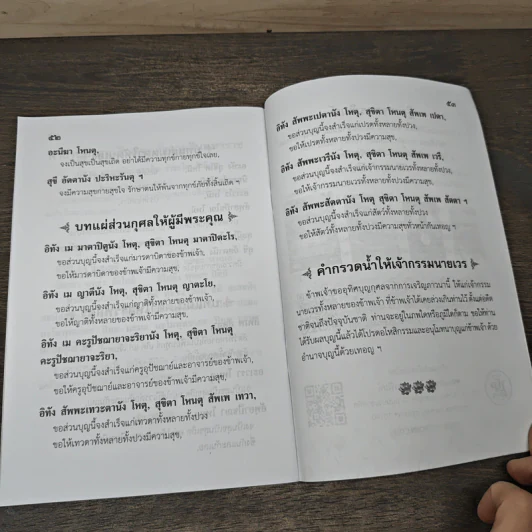 ๕๒
อะนีฆา โหนตุ,
จงเป็นสุขเป็นสุขเถิด อย่าได้มีความทุกข์กายทุกข์ใจเลย,
สุขี อัตตานัง ปะริหะรันตุ ฯ
จงมีความสุขกายสุขใจ รักษาตนให้พ้นจากทุกข์ภัยทั้งสิ้นเถิด ฯ
บทแผ่ส่วนกุศลให้ผู้มีพระคุณ
อิทัง เม มาตาปิตูนัง โหตุ, สุขิตา โหนตุ มาตาปิตะโร,
ขอส่วนบุญนี้จงสำเร็จแก่มารดาบิดาของข้าพเจ้า,
ขอให้มารดาบิดาของข้าพเจ้ามีความสุข,
อิทัง เม ญาตีนัง โหตุ, สุขิตา โหนตุ ญาตะโย,
ขอส่วนบุญนี้จงสำเร็จแก่ญาติทั้งหลายของข้าพเจ้า,
ขอให้ญาติทั้งหลายของข้าพเจ้ามีความสุข,
อิทัง เม คะรูปัชฌายาจะริยานัง โหตุ, สุขิตา โหนตุ
คะรูปัชฌายาจะริยา,
ขอส่วนบุญนี้จงสำเร็จแก่ครูอุปัชฌาย์และอาจารย์ของข้าพเจ้า,
ขอให้ครูอุปัชฌาย์และอาจารย์ของข้าพเจ้ามีความสุข,
อิทัง สัพพะเทวะตานัง โหตุ, สุขิตา โหนตุ สัพเพ เทวา,
ขอส่วนบุญนี้จงสำเร็จแก่เทวดาทั้งหลายทั้งปวง
ขอให้เทวดาทั้งหลายทั้งปวงมีความสุข,
๕๓
อิทัง สัพพะเปตานัง โหตุ, สุขิตา โหนตุ สัพเพ เปตา,
ขอส่วนบุญนี้จงสำเร็จแก่เปรตทั้งหลายทั้งปวง,
ขอให้เปรตทั้งหลายทั้งปวงมีความสุข,
อิทัง สัพพะเวรีนัง โหตุ, สุขิตา โหนตุ สัพเพ เวรี,
ขอส่วนบุญนี้จงสำเร็จแก่เจ้ากรรมนายเวรทั้งหลายทั้งปวง,
ขอให้เจ้ากรรมนายเวรทั้งหลายทั้งปวงมีความสุข,
อิทัง สัพพะสัตตานัง โหตุ, สุขิตา โหนตุ สัพเพ สัตตา ฯ
ขอส่วนบุญนี้จงสำเร็จแก่สัตว์ทั้งหลายทั้งปวง
ขอให้สัตว์ทั้งหลายทั้งปวงมีความสุขทั่วหน้ากันเทอญ ฯ
คำกรวดน้ำให้เจ้ากรรมนายเวร
ข้าพเจ้าขออุทิศบุญกุศลจากการเจริญภาวนานี้ ให้แก่เจ้ากรรม
นายเวรทั้งหลายของข้าพเจ้า ที่ข้าพเจ้าได้เคยล่วงเกินท่านไว้ ตั้งแต่อดีต
ชาติจนถึงปัจจุบันชาติ ท่านจะอยู่ในภพใดหรือภูมิใดก็ตาม ขอให้ท่าน
ได้รับผลบุญนี้แล้วได้โปรดอโหสิกรรมและอนุโมทนาบุญแก่ข้าพเจ้าด้วย
อำนาจบุญนี้ด้วยเทอญ ฯ